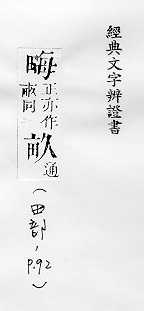 經典文字辨證書
畮
正亦作
同
畝通
（田部，P.92）